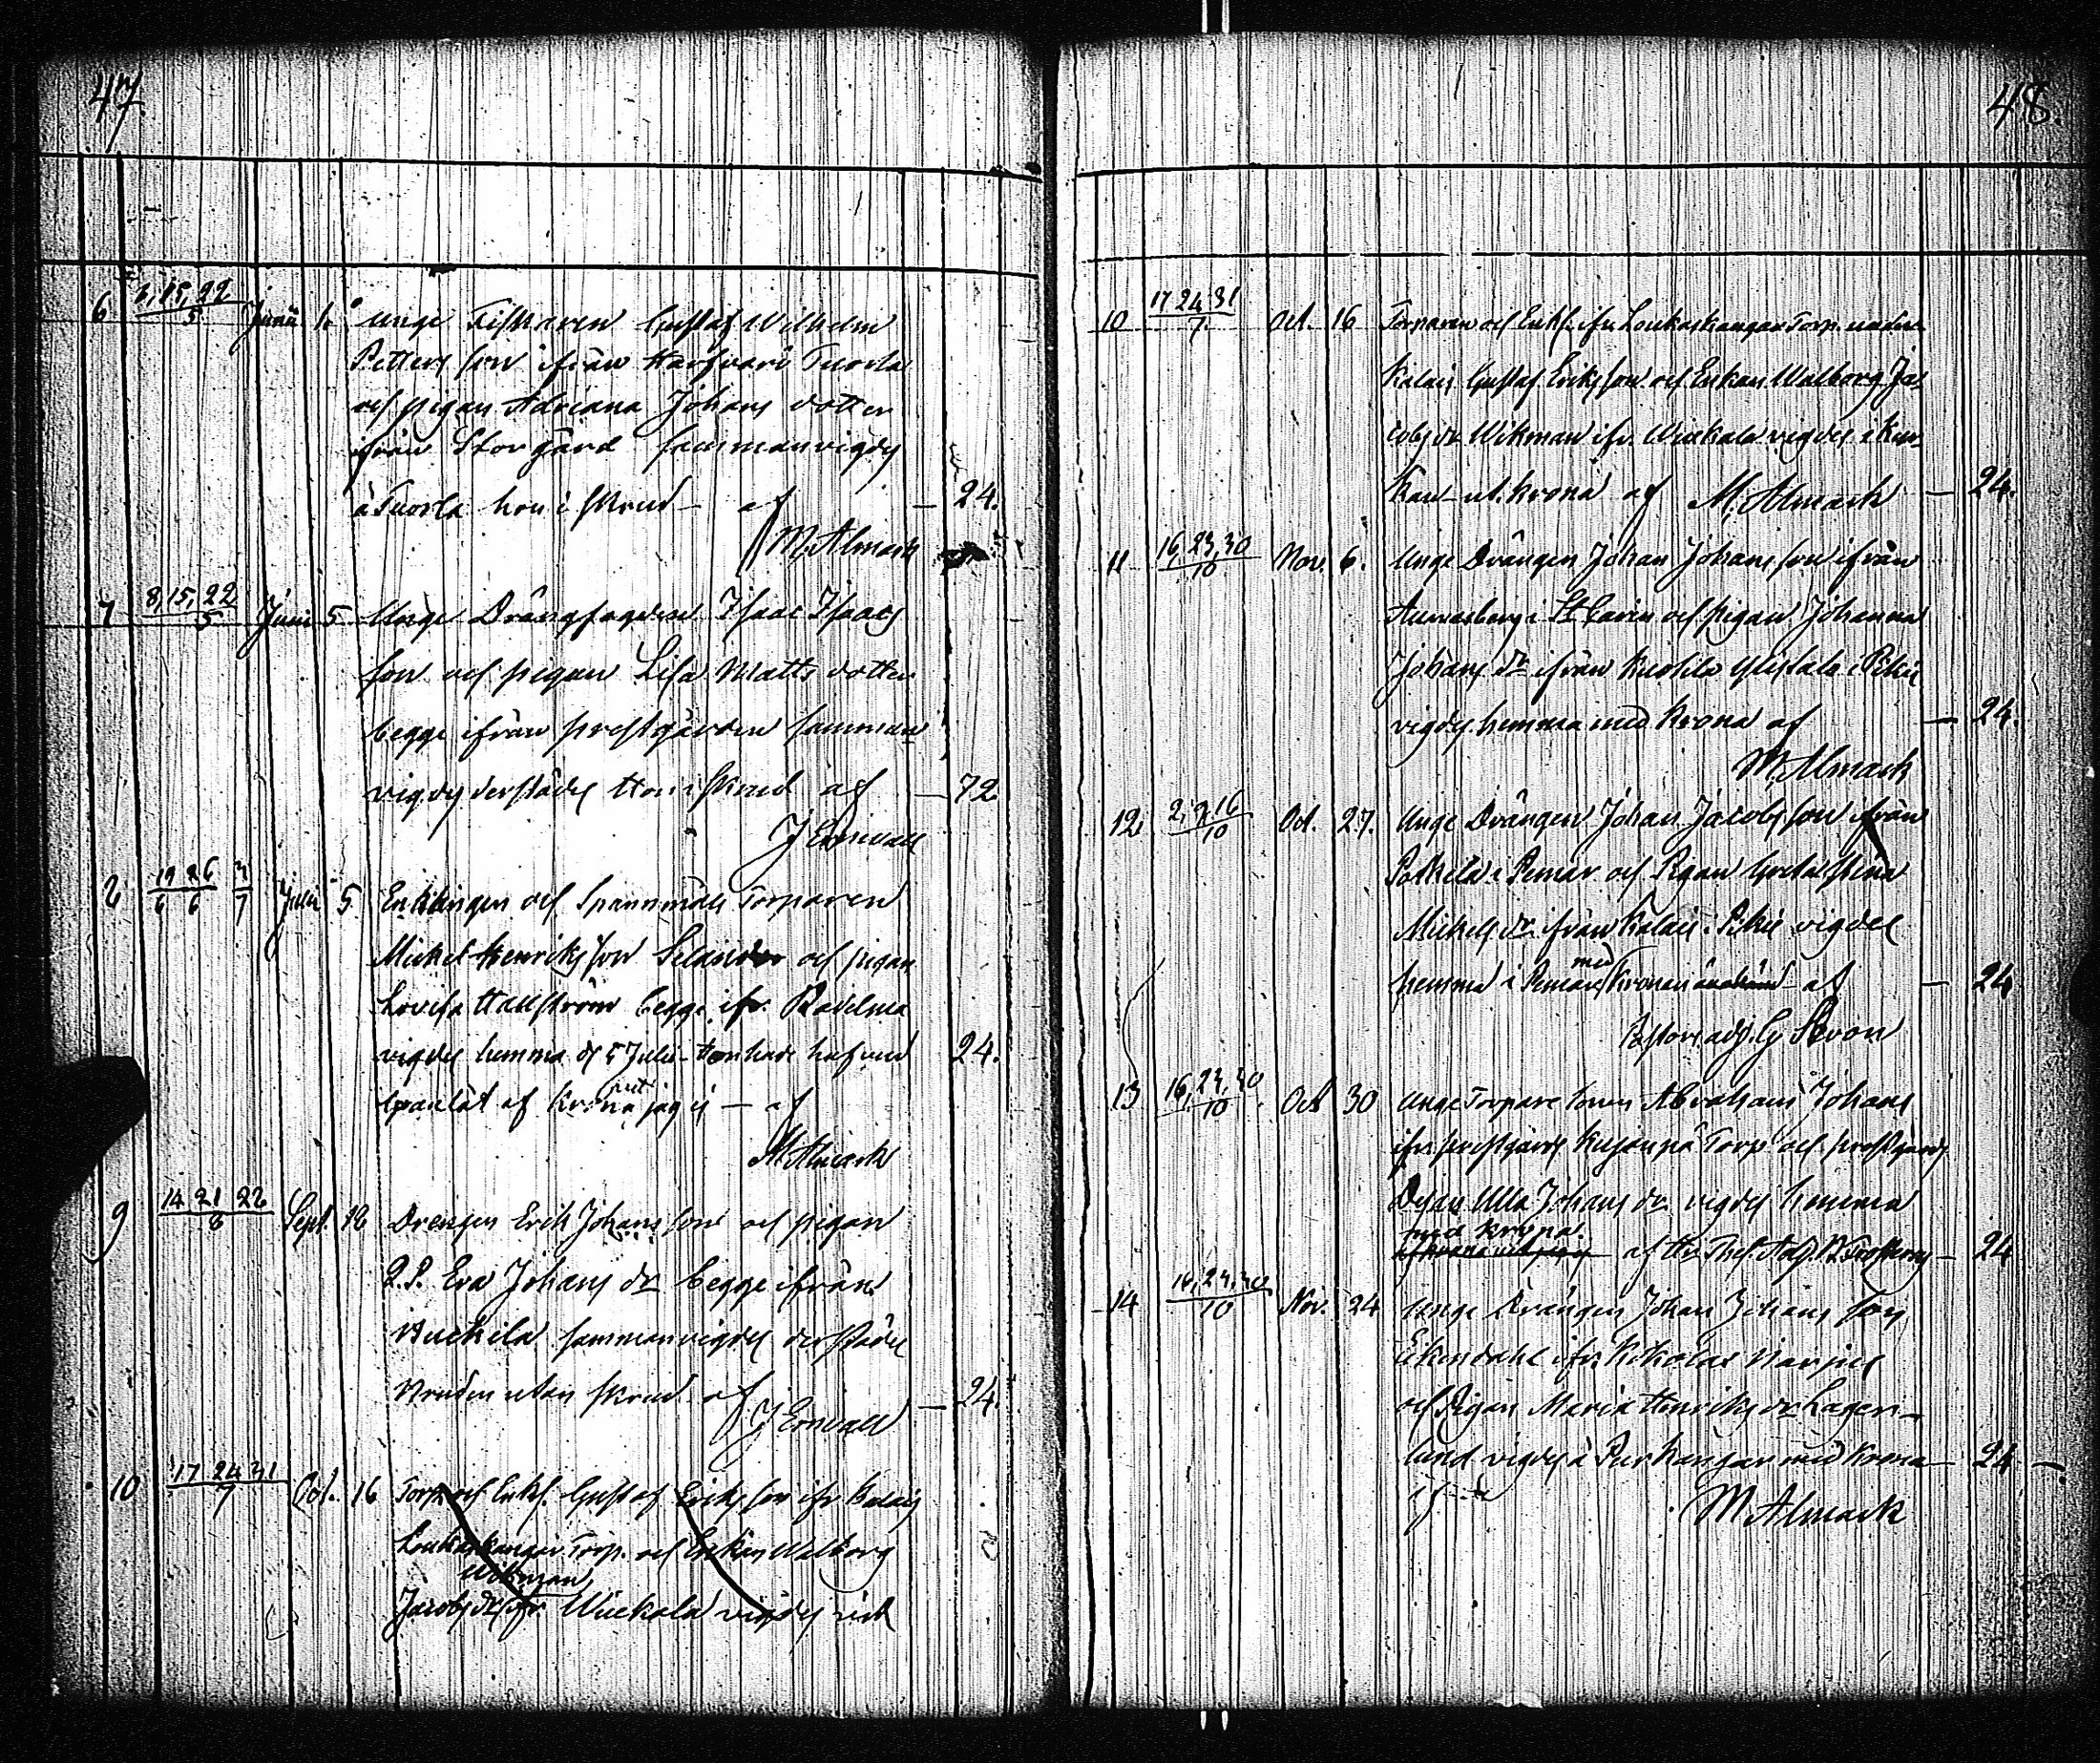 47
6 8,15,22/5 Junii 1. Unge Fiskaren Gustaf Wilhelm
Petters son ifrån Harfvaro Tuorla
och pigan Adriana Johans dotter
ifrån Storgård sammanvigdes
å Tuorla hon i skrud – af – 24.
M. Almark
7 8,15,22/5 Junii 5 Unge Isaac Isaacs
son och pigan Lisa Matts dotter
begge ifrån prestgården samman
vigdes derstädes Hon i skrud af – 72
J Ervwall
8 19/6 26/6 3/7 Julii 5 Enklingen och Spannmåls Torparen
Michel Henriks son Selander och pigan
Lovisa Hallström begge ifr. Radelma
vigdes hemma d 5 Julii – 24.
af Krona jag ej – af
M Almark
9 14 21 28/8 Sept. 18 Drengen Erik Johans son och pigan
Q.P. Eva Johans dr begge ifrån
Huckila sammanvigdes derstädes
Bruden utan skrud af – 24.
J Ervwall
10 17 24 31/7 Oct. 16 Torp. och Enkl. Gustaf Eriks son ifr Kalais
Loukaskangar Torp. och Enkan Walborg
Wikman
Jacobs dr ifr. Wiickala vigdes vid
48.
10 17 24 31/7 Oct. 16 Torparen och Enkl. ifr Loukaskangar Torp under
Kalais Gustaf Eriks son och Enkan Walborg Ja-
cobs dr Wikman ifr. Wiickala vigdes i Kyr-
kan – ut. krona af M. Almark – 24.
11 16,23,30/10 Nov. 6. Unge Drängen Johan Johans son ifrån
i St Carin och pigan Johanna
Johans dr ifrån i Pikis
vigdes hemma med Krona af – 24.
M. Almark
12 2,9,16/10 Oct. 27. Unge Drängen Johan Jacobs son ifrån
i Pemar och Pigan Greta Stina
Michels dr ifrån Kalais i Pikis vigdes
med
hemma i Pemar Kronan af – 24
Pastors adj. G Sevon
13 16,23,30/10 Oct 30 Unge Torpare sonen Abraham Johans
ifr. prestgårds Torp och prestgårds
Pigan Ulla Johans dr vigdes hemma
med Krona.
af Hr Adj. – 24
14 16,23,30/10 Nov. 24 Unge Drängen Johan Johans son
Ekendahl ifr
och Pigan Maria Henriks dr Lager-
lund vigdes å Purhangar med Krona – 24 –
af
M Almark